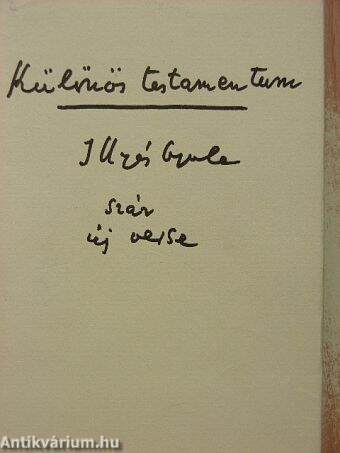 Különös testamentum
Illyés Gyula
száz
új verse
Antikvárium.hu